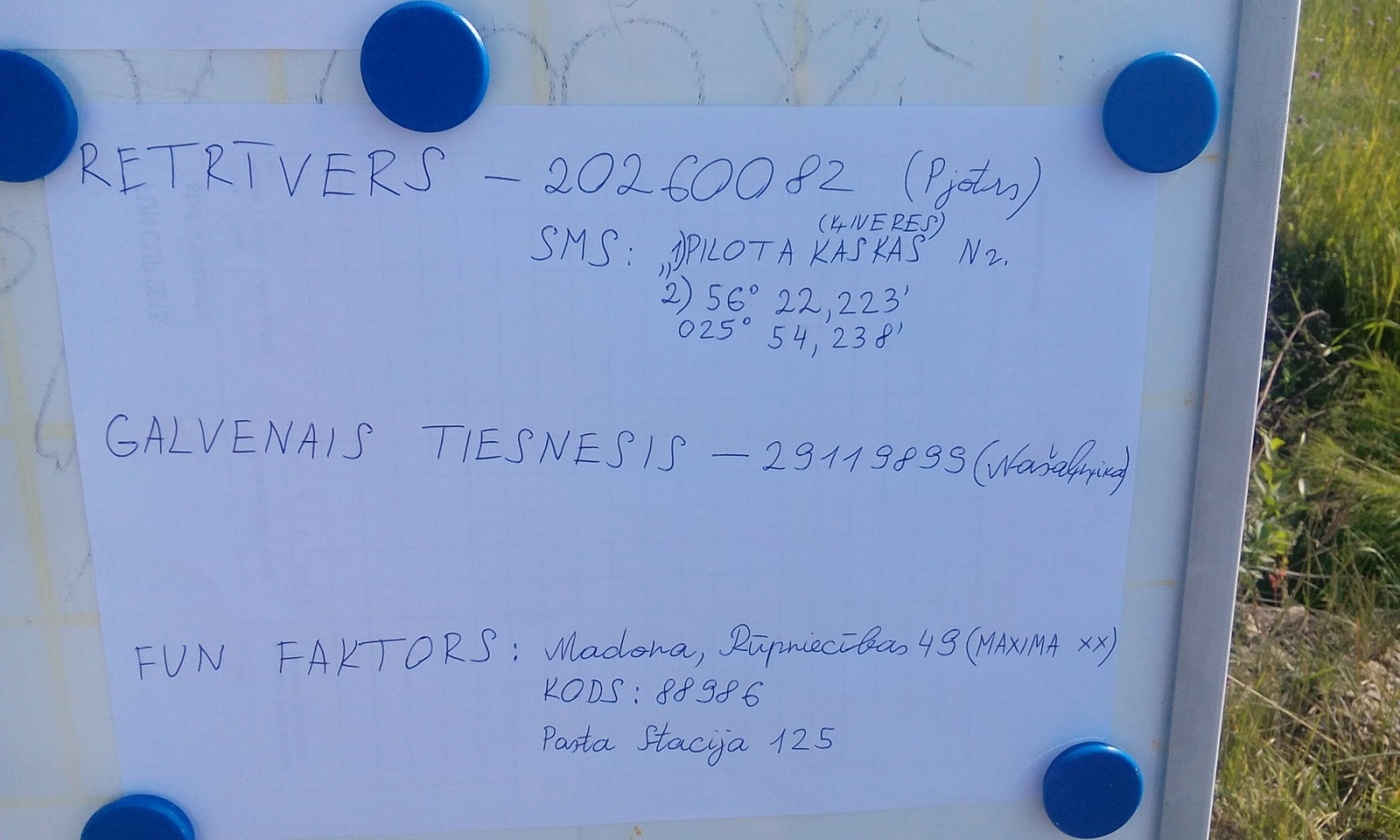 RETRĪVERS – 20260082 (Pjotrs)
(4 NERES)
SMS: „1) PILOTA KASKAS Nr.
2) 56° 22,223'
025° 54,238'
GALVENAIS TIESNESIS – 29119899
FUN FAKTORS: Madona, Rūpniecības 49 (MAXIMA XX)
KODS: 88986
Pasta Stacija 125